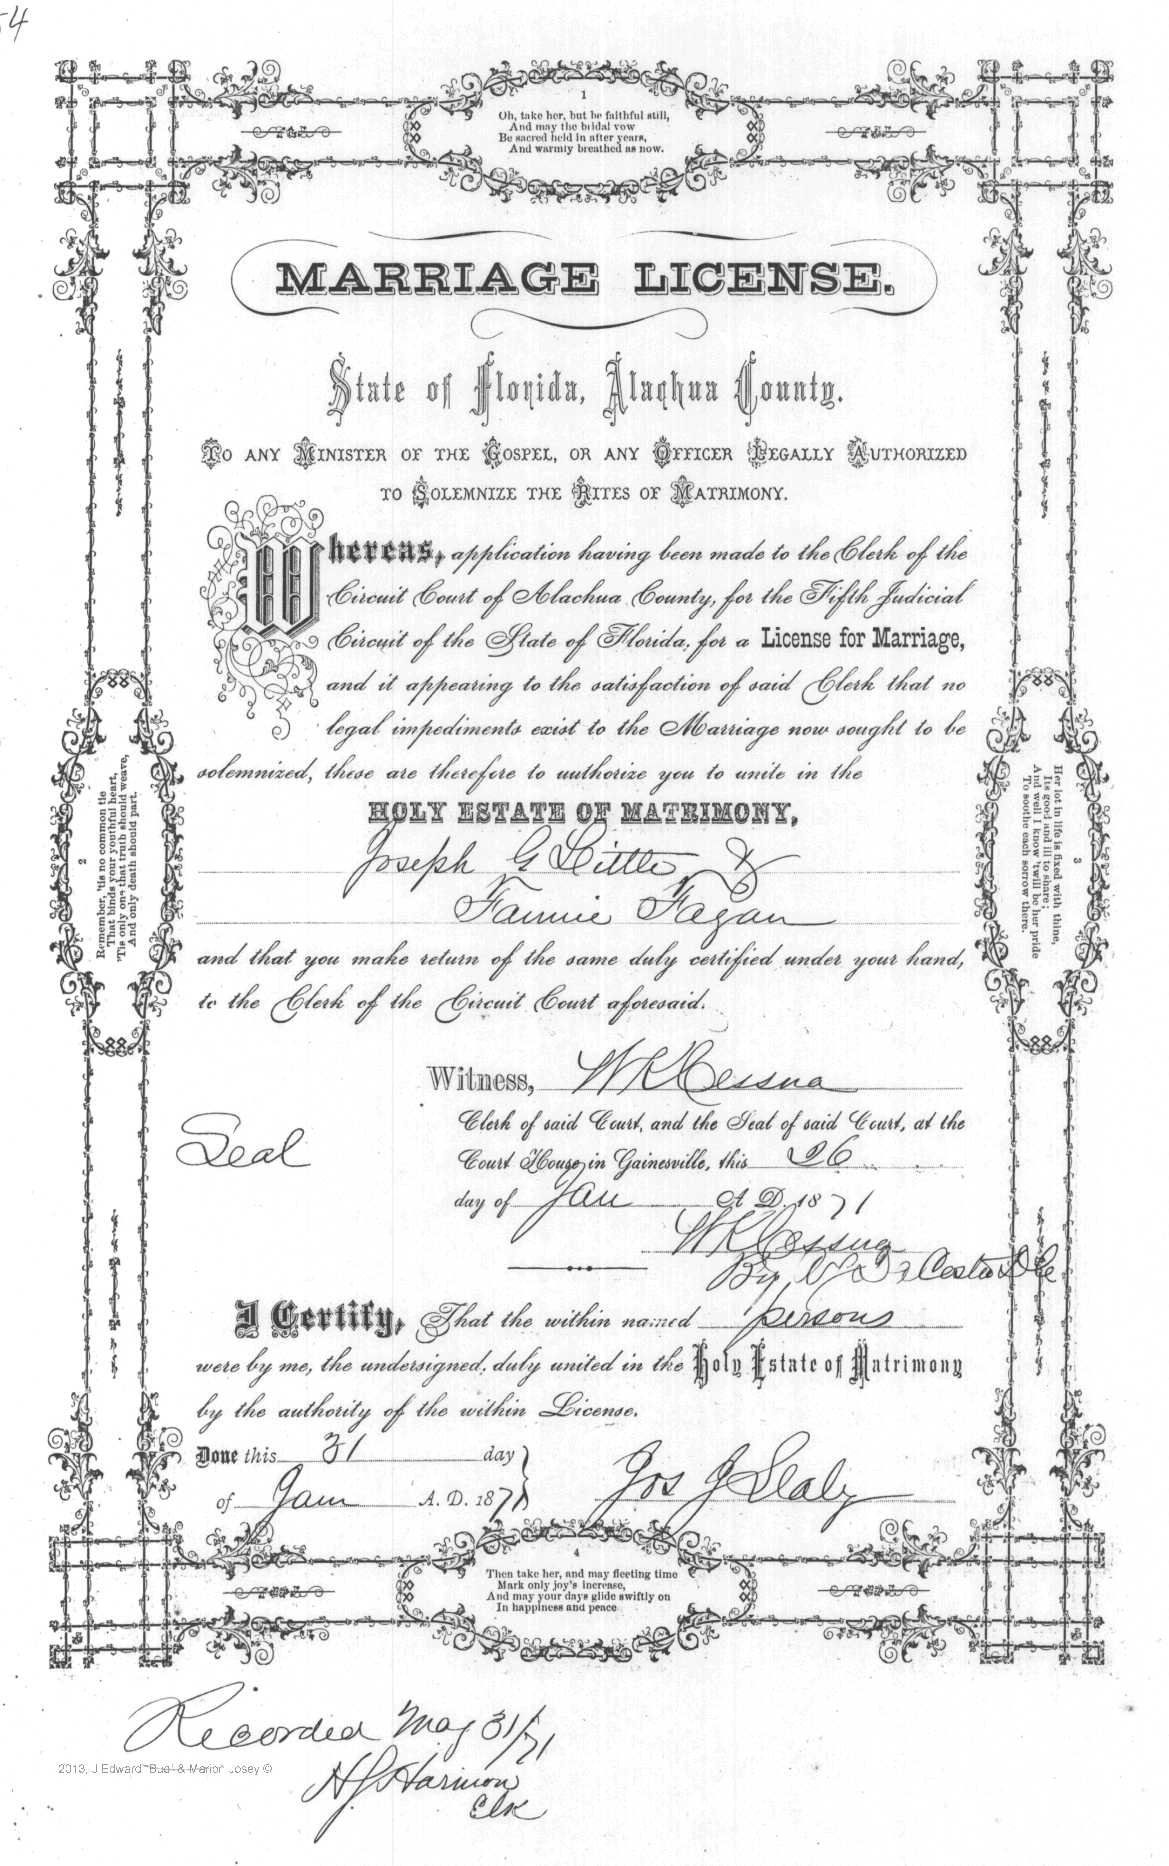 54
1
Oh, take her, but be faithful still,
And may the bridal vow
Be sacred held in after years,
And warmly breathed as now.
MARRIAGE LICENSE.
State of Florida, Alachua County.
TO ANY MINISTER OF THE GOSPEL, OR ANY OFFICER LEGALLY AUTHORIZED
TO SOLEMNIZE THE RITES OF MATRIMONY.
Whereas, application having been made to the Clerk of the
Circuit Court of Alachua County, for the Fifth Judicial
Circuit of the State of Florida, for a License for Marriage,
and it appearing to the satisfaction of said Clerk that no
legal impediments exist to the Marriage now sought to be
solemnized, these are therefore to authorize you to unite in the
HOLY ESTATE OF MATRIMONY,
Joseph G Little &
Fannie Fagan
and that you make return of the same duly certified under your hand,
to the Clerk of the Circuit Court aforesaid.
2
Remember, 'tis no common tie
That binds your youthful heart,
'Tis only one that truth should weave,
And only death should part.
3
Her lot in life is fixed with thine,
Its good and ill to share;
And well I know 'twill be her pride
To soothe each sorrow there.
Witness, W K Cessna
Clerk of said Court, and the Seal of said Court, at the
Seal
Court House in Gainesville, this 26
day of Jan A. D. 1871
W K Cessna
By Da Costa D C
I Certify, That the within named persons
were by me, the undersigned, duly united in the Holy Estate of Matrimony
by the authority of the within License.
Done this 31 day
of Jan A. D. 1871
Jos J Sealy
4
Then take her, and may fleeting time
Mark only joy's increase,
And may your days glide swiftly on
In happiness and peace
Recorded May 31/71
2013, J Edward "Bud" & Marion Josey ©
H J Harmon
Clk